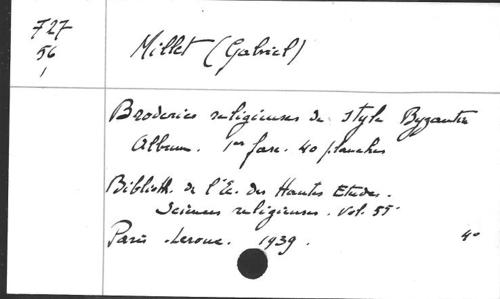 727
56
1
Millet (Gabriel)
Broderies religieuses de style Byzantin
Album. 1er fasc. 40 planches
Biblioth. de l'Ec. des Hautes Etudes.
Sciences religieuses. Vol. 55
Paris Leroux. 1939. 4°